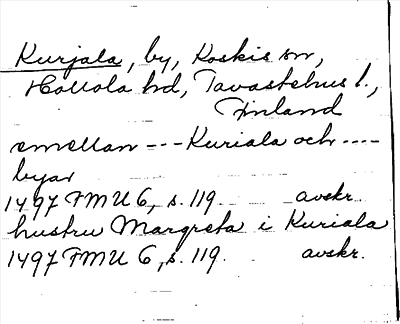 Kurjala, by, Koskis sn,
Hollola hd, Tavastehus l.,
Finland
emellan --- Kuriala och ----
byar
1497 FMU 6, s. 119. avskr.
hustru Margreta i Kuriala
1497 FMU 6, s. 119. avskr.